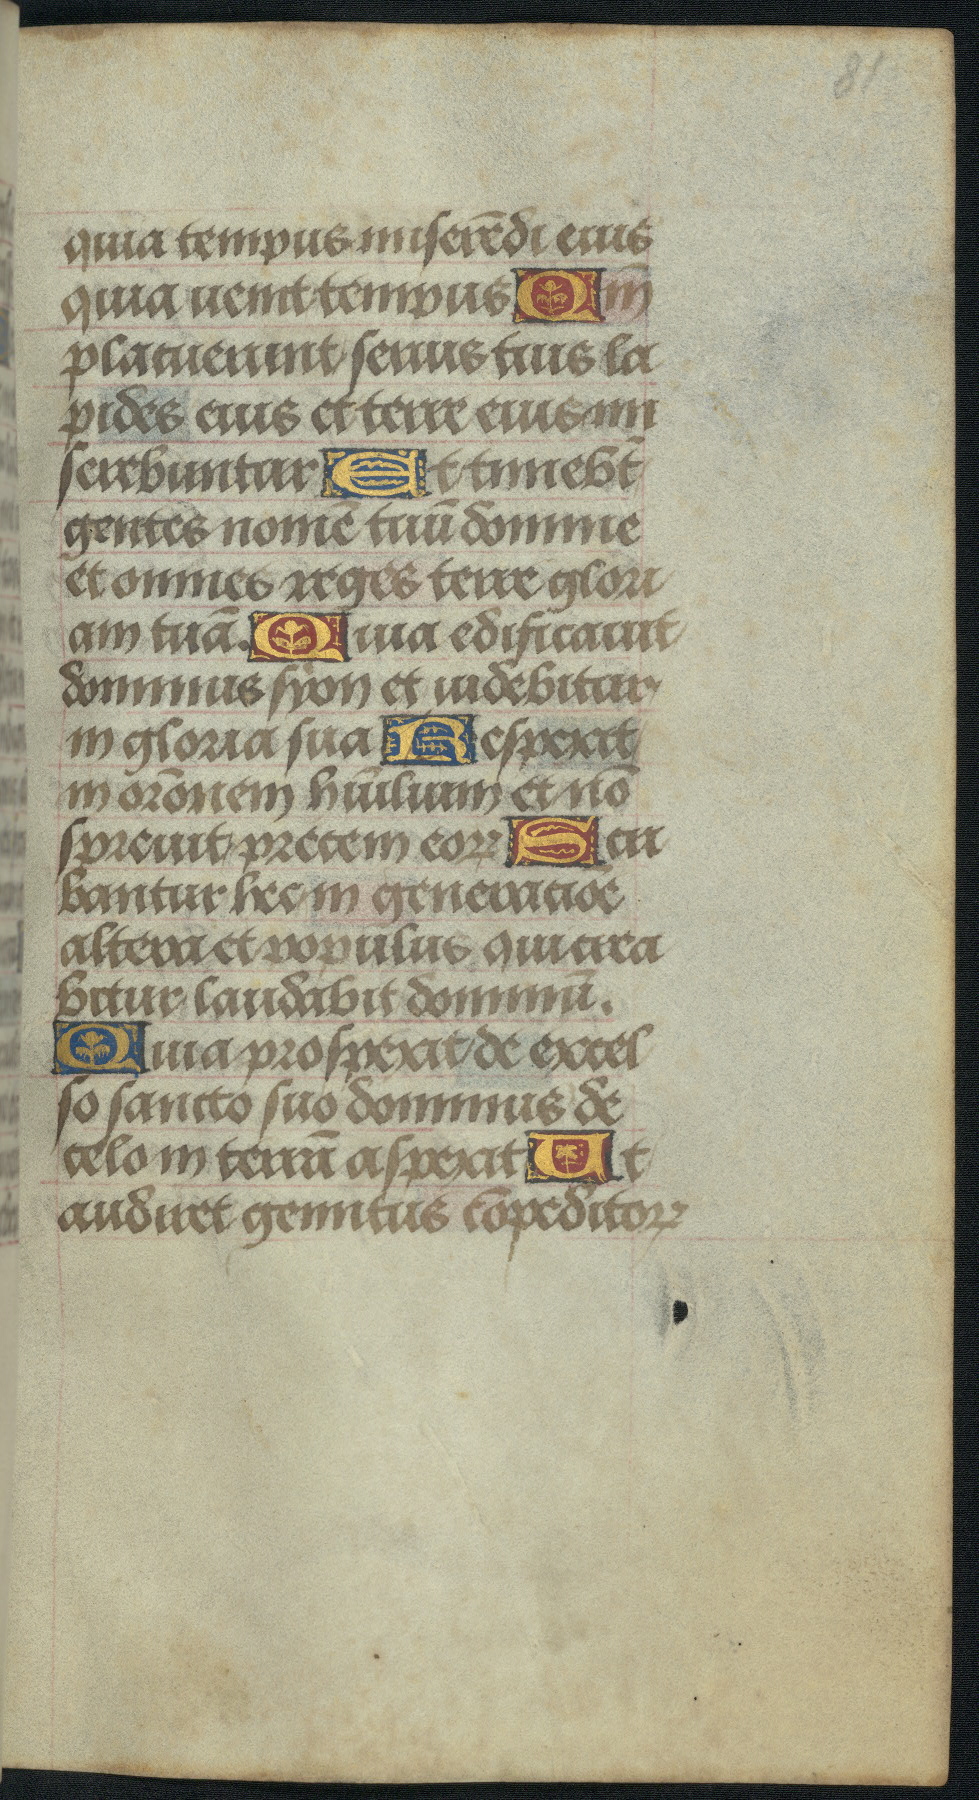 81
quia tempus miserẽdi eius
quia uenit tempus Qm̃
placuerunt seruis tuis la
pides eius et terre eius mi
serebuntur Et timebt̃
gentes nomẽ tuũ domine
et omnes reges terre glori
am tuã. Quia edificauit
dominus syon et uidebitur
in gloria sua Respexit
in orõnem hũilium et nõ
spreuit precem eoꝝ Scri
bantur hec in generatiõe
altera et populus qui crea
bitur laudabit dominũ.
Quia prospexit de excel
so sancto suo dominus de
celo in terrã aspexit Ut
audiret gemitus cõpeditoꝝ